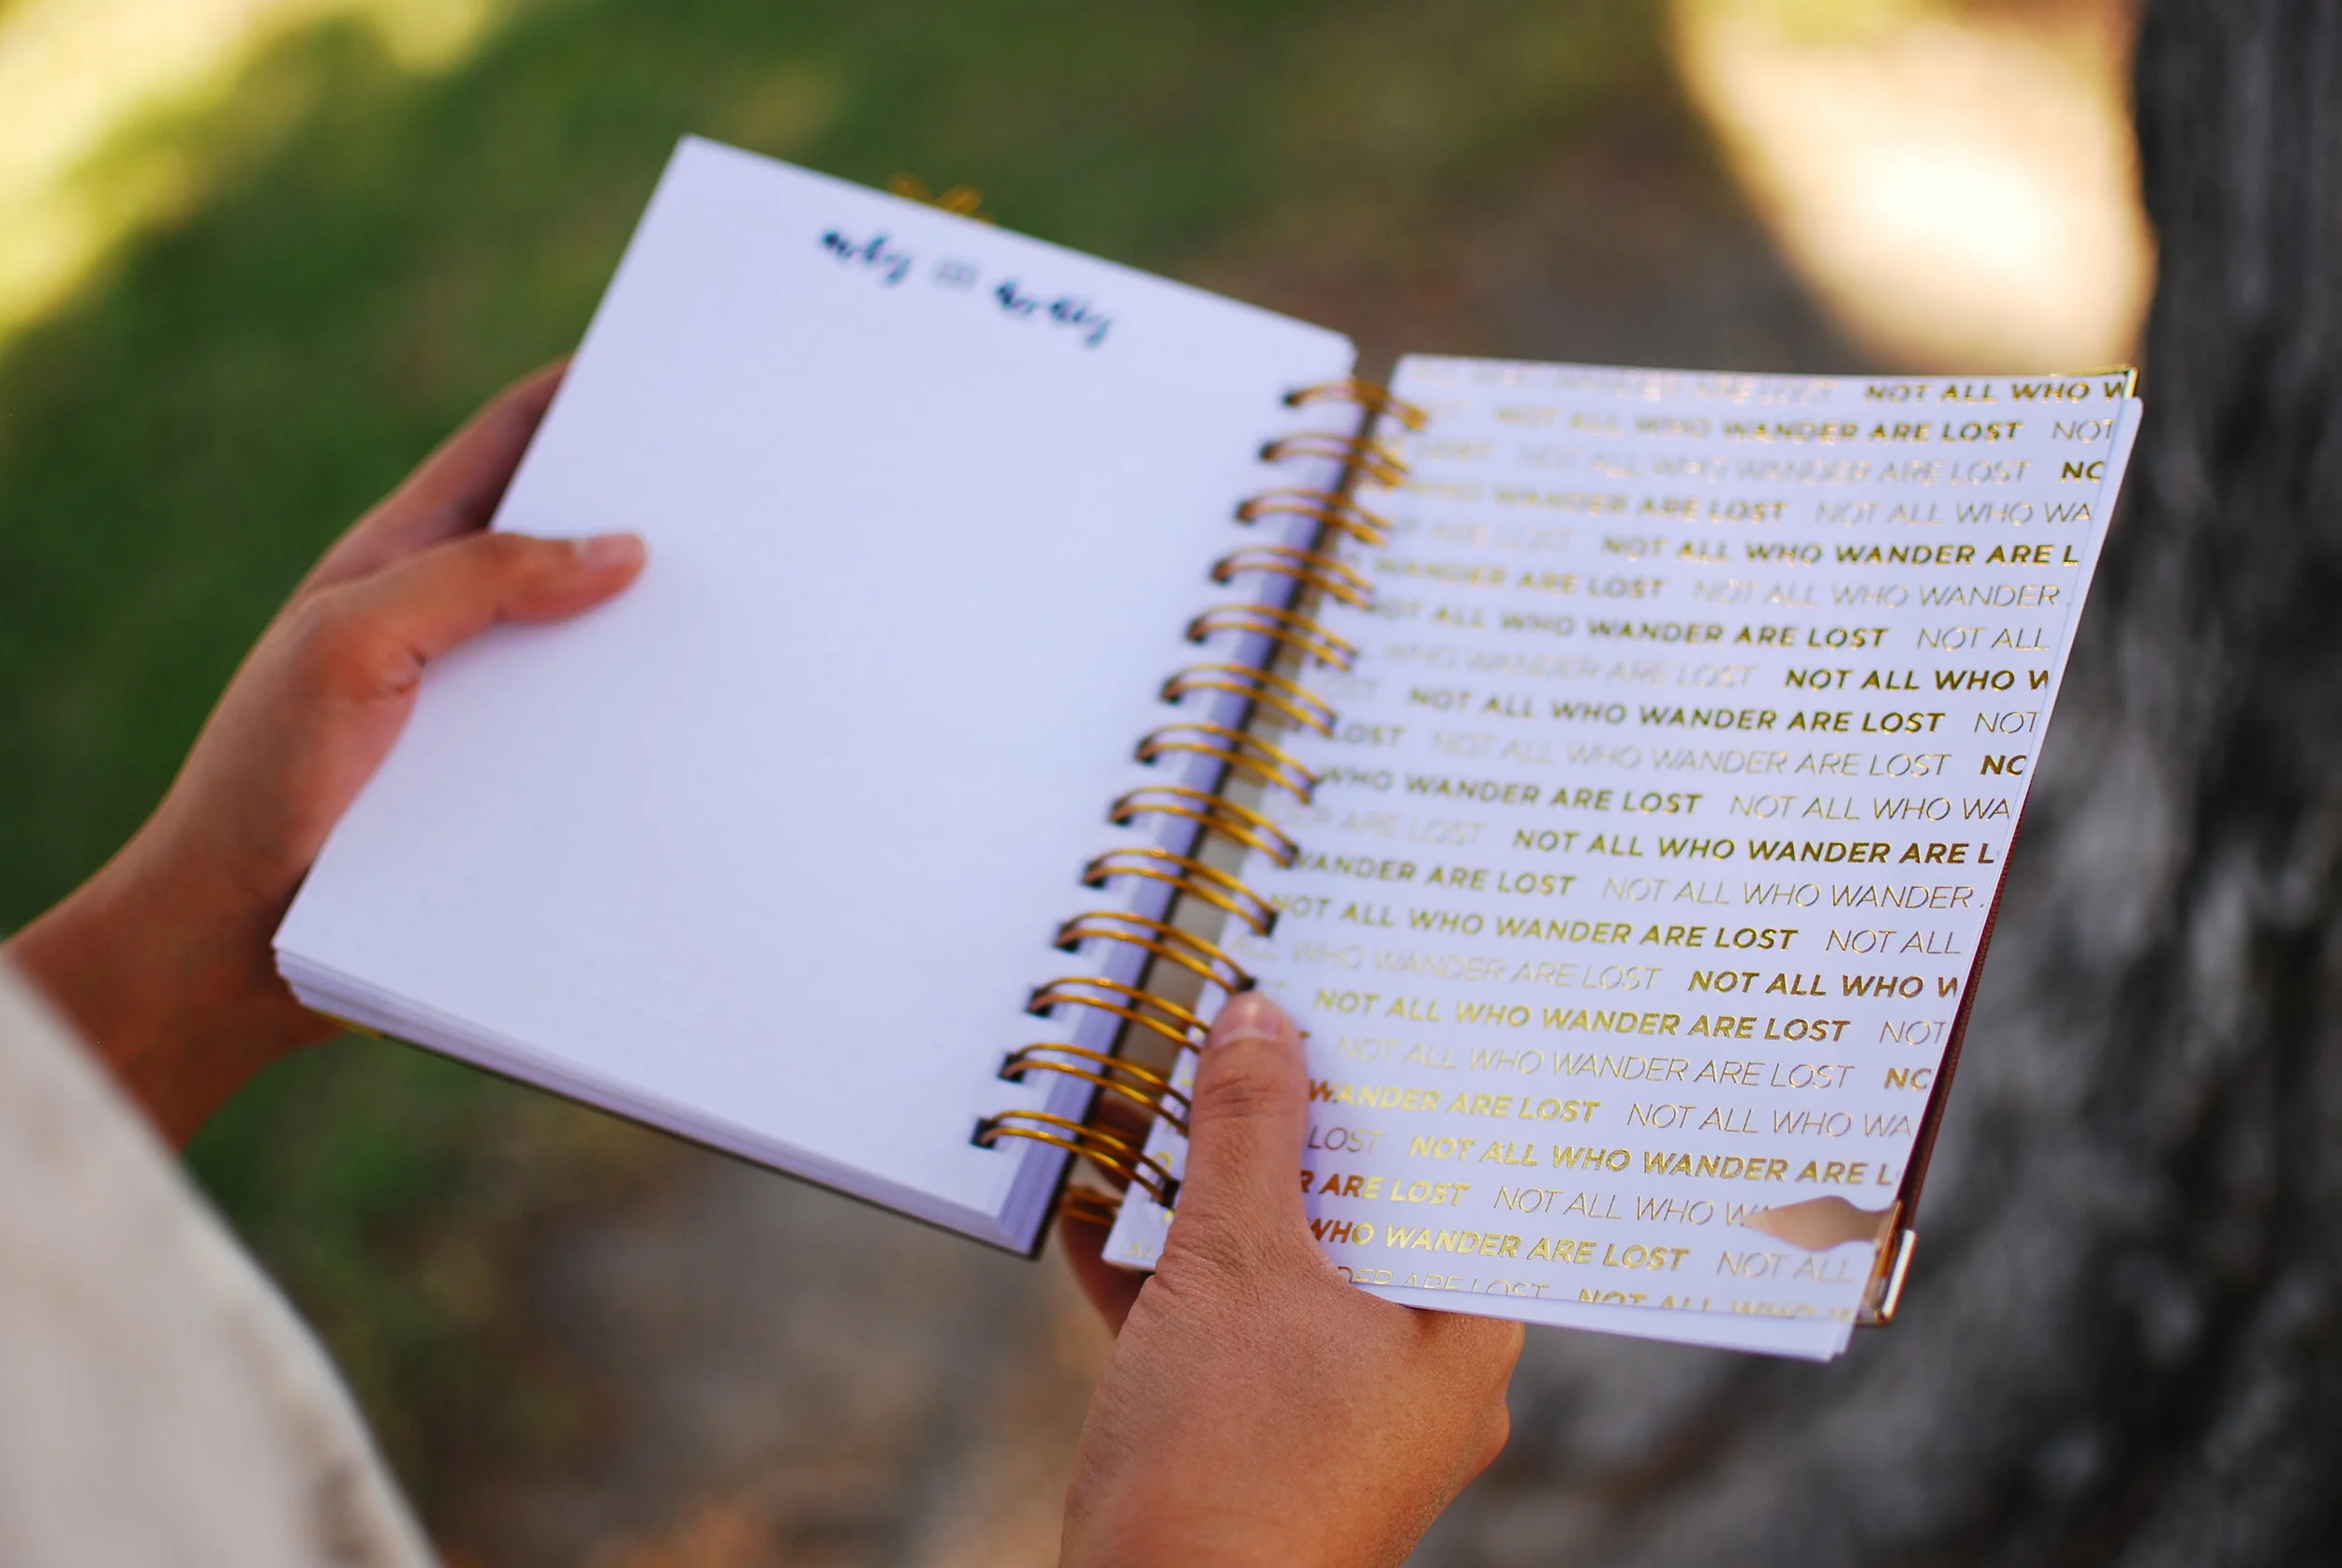 ALL WHO WANDER ARE LOST NOT ALL WHO W
NOT ALL WHO WANDER ARE LOST NOT
LOST NOT ALL WHO WANDER ARE LOST NC
WHO WANDER ARE LOST NOT ALL WHO WA
R ARE LOST NOT ALL WHO WANDER ARE L
WANDER ARE LOST NOT ALL WHO WANDER
NOT ALL WHO WANDER ARE LOST NOT ALL
L WHO WANDER ARE LOST NOT ALL WHO W
OST NOT ALL WHO WANDER ARE LOST NOT
LOST NOT ALL WHO WANDER ARE LOST NC
WHO WANDER ARE LOST NOT ALL WHO WA
DER ARE LOST NOT ALL WHO WANDER ARE L
WANDER ARE LOST NOT ALL WHO WANDER
NOT ALL WHO WANDER ARE LOST NOT ALL
ALL WHO WANDER ARE LOST NOT ALL WHO W
ST NOT ALL WHO WANDER ARE LOST NOT
NOT ALL WHO WANDER ARE LOST NC
WANDER ARE LOST NOT ALL WHO WA
LOST NOT ALL WHO WANDER ARE L
R ARE LOST NOT ALL WHO W
WHO WANDER ARE LOST NOT ALL
DER ARE LOST NOT ALL WHO W